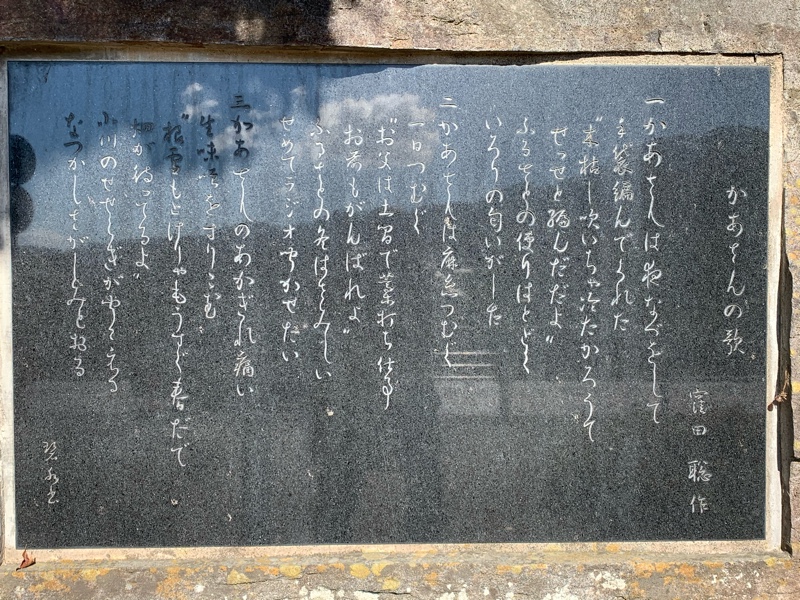 かあさんの歌
窪田 聡 作
一かあさんは夜なべをして
手袋編んでくれた
"木枯し吹いちゃ冷たかろうて
せっせと編んだだよ"
ふるさとの便りはとどく
いろりの匂いがした
二かあさんは麻糸つむぐ
一日つむぐ
"お父は土間で藁打ち仕事
お前もがんばれよ"
ふるさとの冬はさみしい
せめてラジオ聞かせたい
三かあさんのあかぎれ痛い
生味噌をすりこむ
"根雪もとけりゃもうすぐ春だで
畑が待ってるよ"
小川のせせらぎが聞こえる
なつかしさがしみとおる